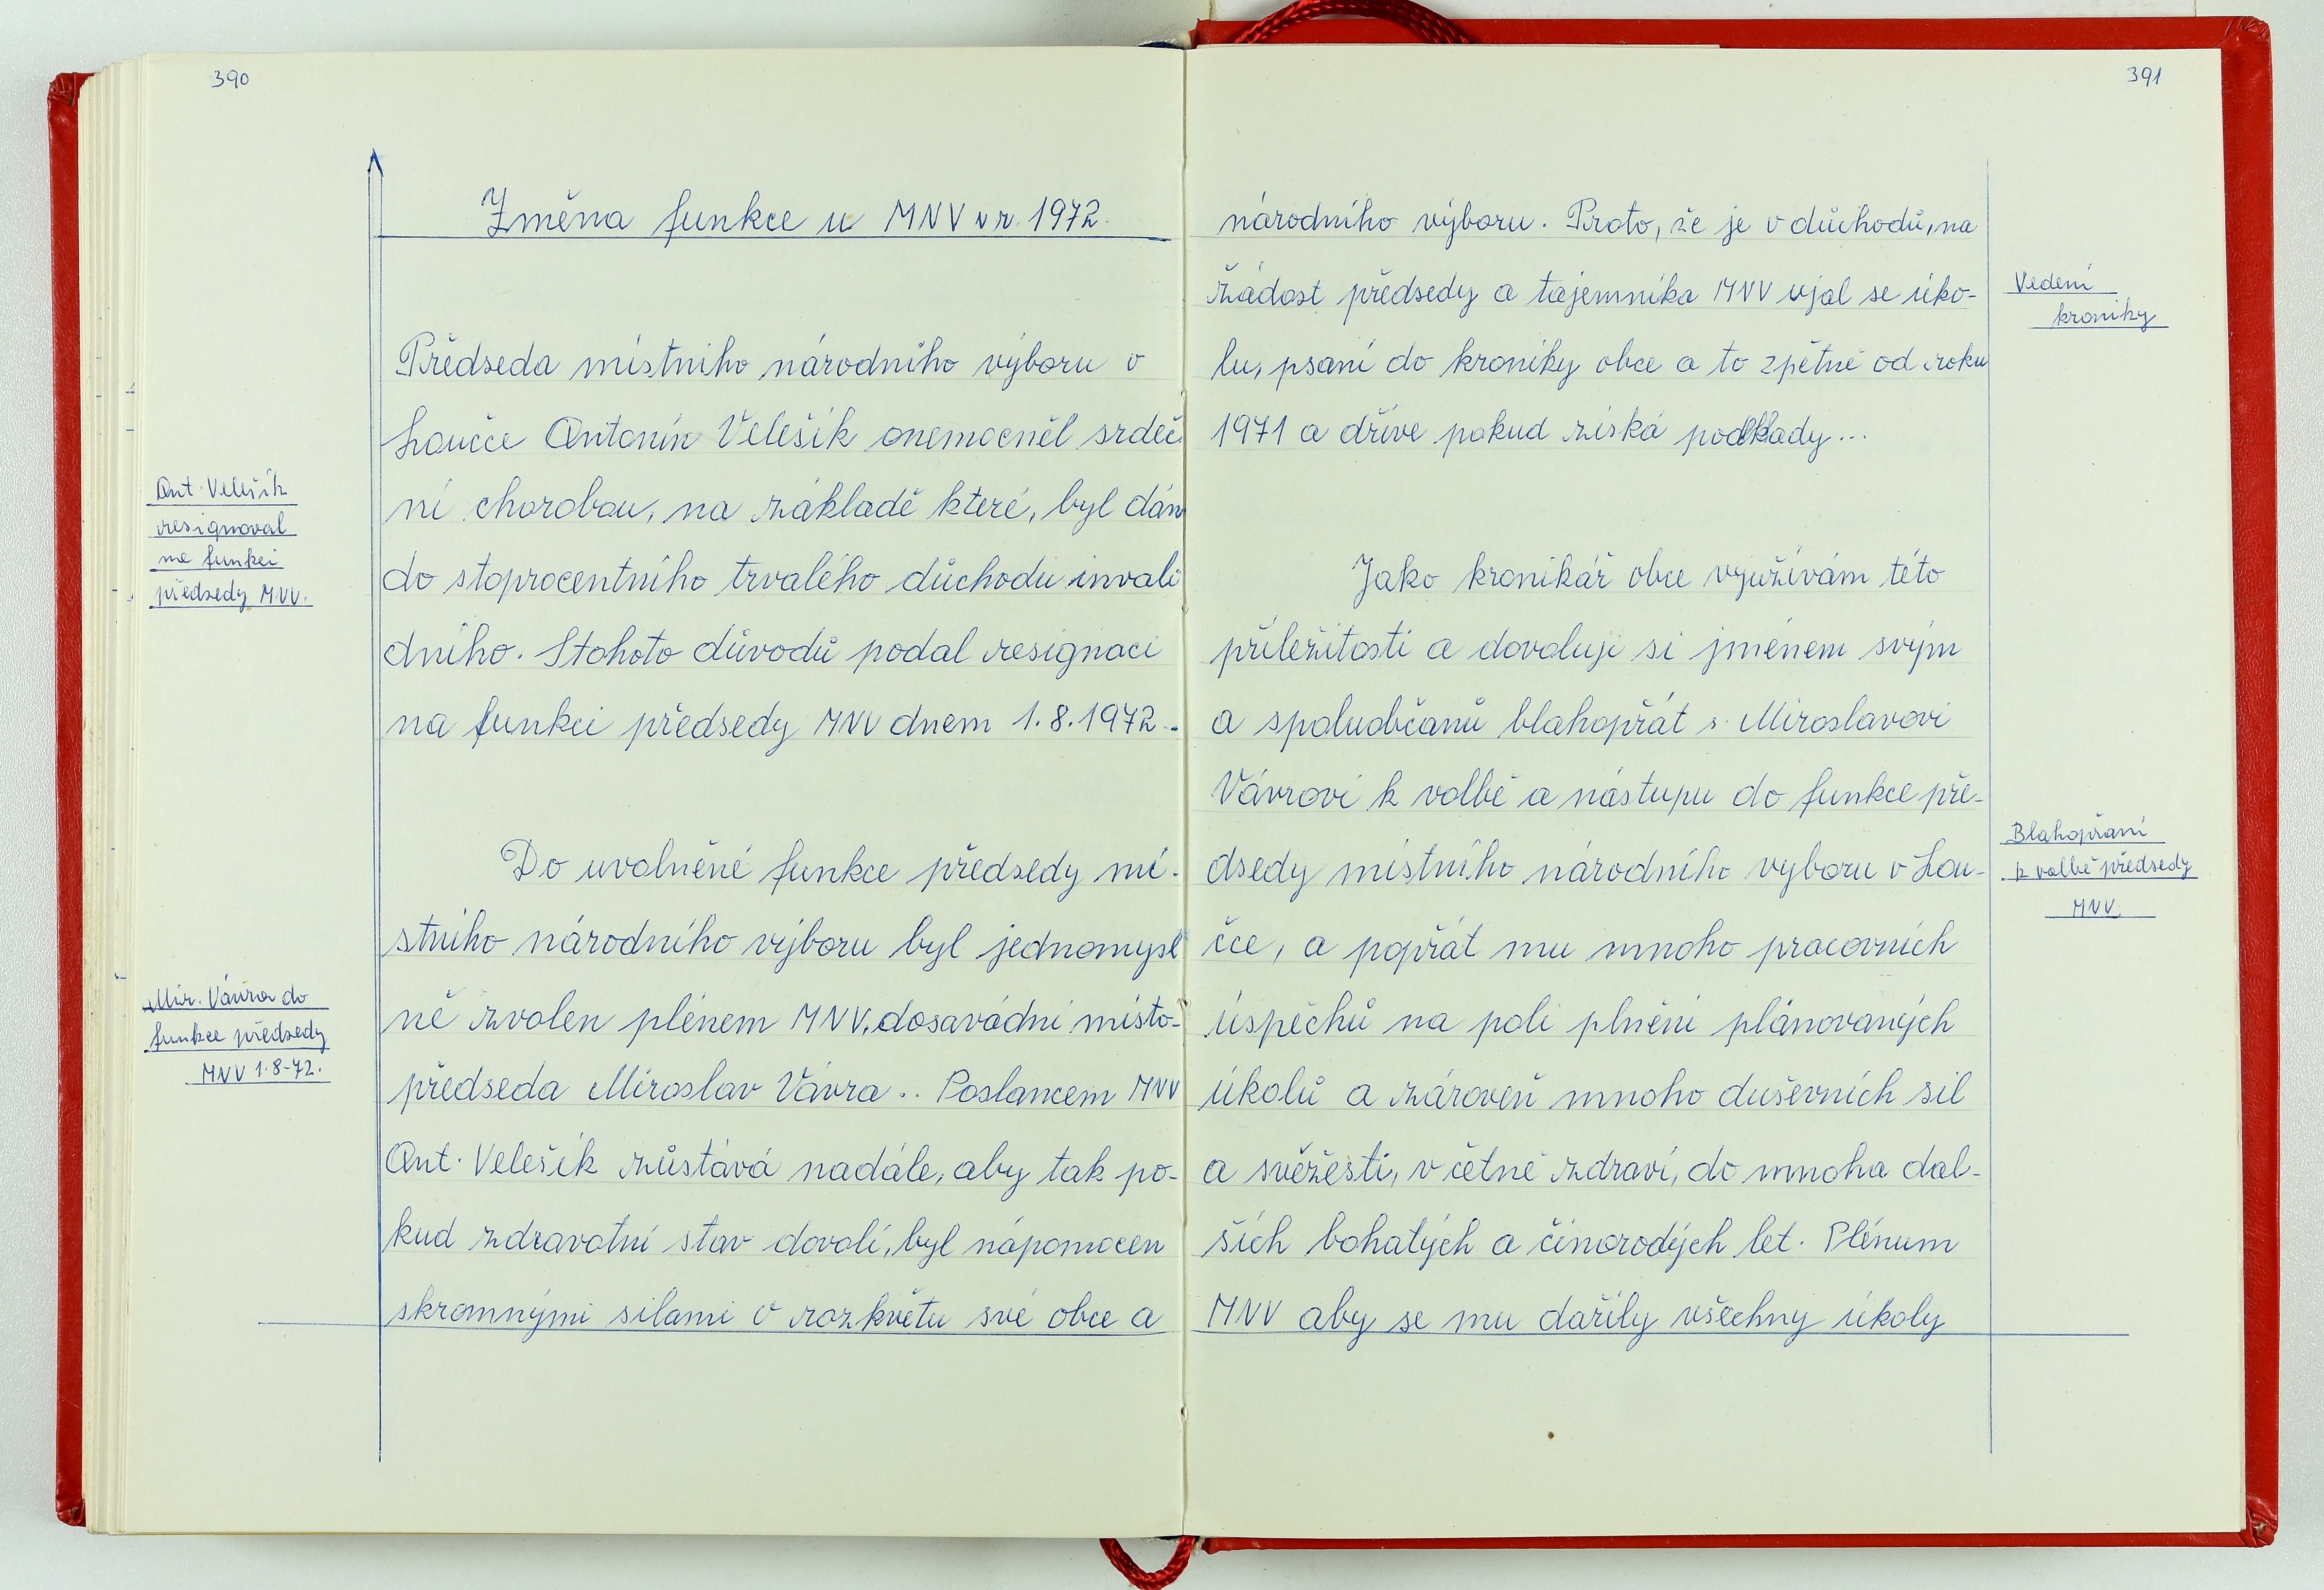 390
Změna funkce u MNV v r. 1972.
Předseda místního národního výboru v
Loučce Antonín Velešík onemocněl srdeč-
ní chorobou, na základě které, byl dán
do stoprocentního trvalého důchodu invali
dního. Stohoto důvodů podal resignaci
na funkci předsedy MNV dnem 1.8.1972.
Ant. Velešík
resignoval
na funkci
předsedy MNV.
Do uvolněné funkce předsedy mí-
stního národního výboru byl jednomysl
ně zvolen plénem MNV, dosavádní místo-
předseda Miroslav Vávra.. Poslancem MNV
Ant. Velešík zůstává nadále, aby tak po-
kud zdravotní stav dovolí, byl nápomocen
skromnými silami v rozkvětu své obce a
Mir. Vávra do
funkce předsedy
MNV 1.8-72.
391
národního výboru. Proto, že je v důchodů, na
žádost předsedy a tajemníka MNV ujal se úko-
lu, psaní do kroniky obce a to zpětně od roku
1971 a dříve pokud získá podklady...
Vedení
kroniky
Jako kronikář obce využívám této
příležitosti a dovoluji si jménem svým
a spoluobčanů blahopřát s. Miroslavovi
Vávrovi k volbě a nástupu do funkce pře-
dsedy místního národního vyboru v Lou-
čce, a popřát mu mnoho pracovních
úspěchů na poli plnění plánovaných
úkolů a zároveň mnoho duševních sil
a svěžesti, v četně zdraví, do mnoha dal-
ších bohatých a činorodých let. Plénum
MNV aby se mu dařily všechny úkoly
Blahopřaní
k volbě předsedy
MNV.